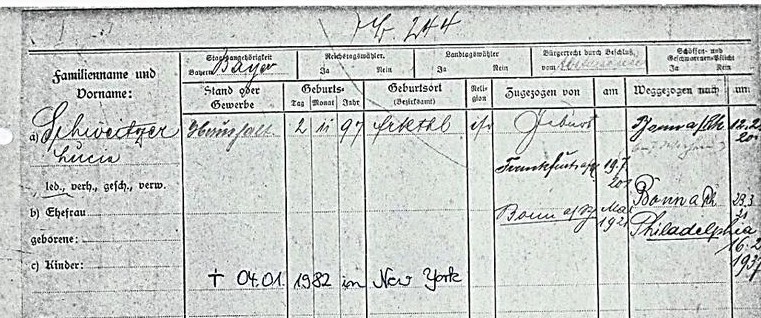 Nr. 244
Familienname und Vorname:
Staatsangehörigkeit
Bayern Bayer
Reichstagswähler.
Ja Nein
Landtagswähler
Ja Nein
Bürgerrecht durch Beschluß
vom
Schöffen- und Geschworenen-Pflicht
Ja Nein
Stand oder Gewerbe
Geburts-
Tag Monat Jahr
Geburtsort
(Bezirksamt)
Religion
Zugezogen von
am
Weggezogen nach
am
a) Schweitzer
Lucie
2 11 97
isr
Geburt
12.2.
20
led., verh., gesch., verw.
Frankfurt a/M
19.7.
20
b) Ehefrau
Bonn a/Rh
Mai
1921
Bonn a Rh
28.3
21
geborene:
Philadelphia
16.2
1937
c) Kinder:
† 04.01. 1982 in New York